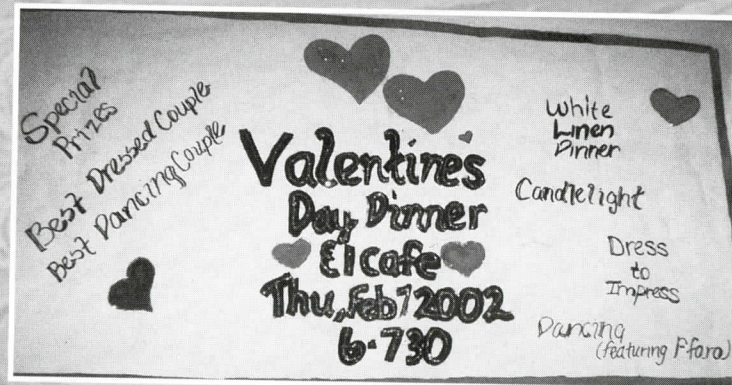 Special
Prizes
Best Dressed Couple
Best Dancing Couple
Valentines
Day Dinner
El cafe
Thu, Feb 7 2002
6-730
White
Linen
Dinner
Candlelight
Dress
to
Impress
Dancing
(featuring Ffara)